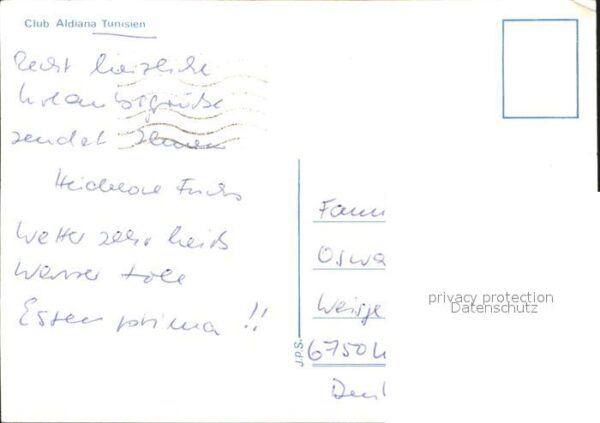 Club Aldiana Tunisien
Recht herzliche
Urlaubsgrüße
sendet Ihnen
Heidelore Fuchs
Wetter sehr heiß
Wasser toll
Essen prima !!
J.P.S.
Fami
Oswa
Weisge
6750 K
Deu
privacy protection
Datenschutz